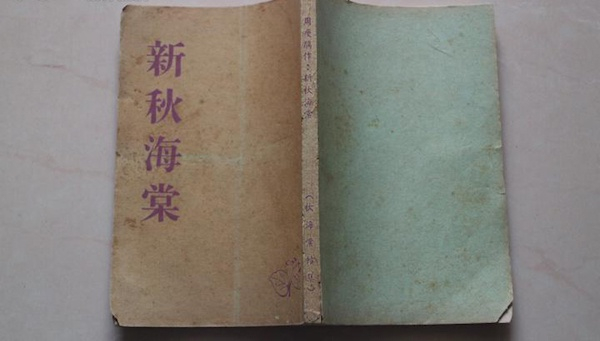 新秋海棠
周瘦鹃作：新秋海棠
（秋海棠續集）